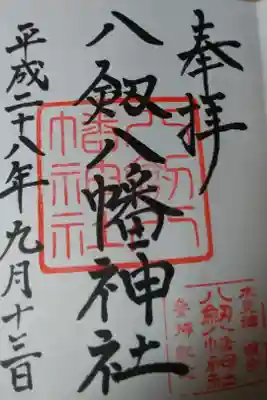 奉拝
八剱八幡神社
平成二十八年九月十三日
八剱八幡神社